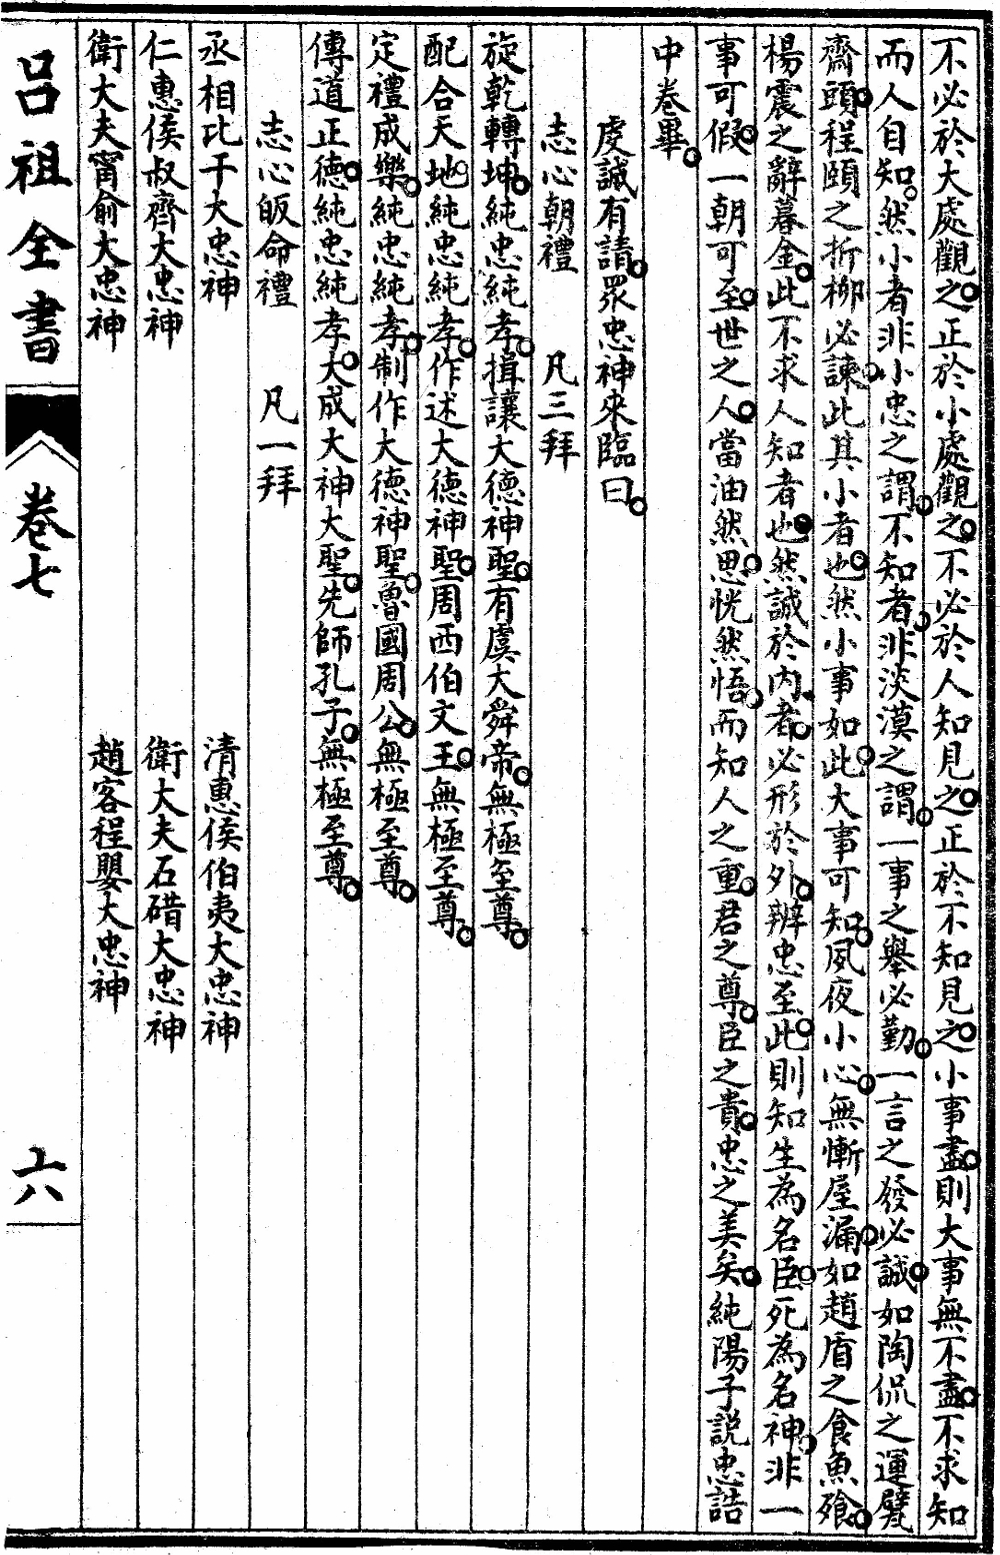 不必於大處觀之正於小處觀之不必於人知見之正於不知見之小事盡則大事無不盡不求知
而人自知然小者非小忠之謂不知者非淡漠之謂一事之舉必勤一言之發必誠如陶侃之運甓
齋頭程頤之折柳必諫此其小者也然小事如此大事可知夙夜小心無慚屋漏如趙盾之食魚飱
楊震之辭暮金此不求人知者也然誠於內者必形於外辨忠至此則知生為名臣死為名神非一
事可假一朝可至世之人當油然思恍然悟而知人之重君之尊臣之貴忠之美矣純陽子説忠誥
中卷畢
虔誠有請眾忠神來臨曰
志心朝禮　凡三拜
旋乾轉坤純忠純孝揖讓大德神聖有虞大舜帝無極至尊
配合天地純忠純孝作述大德神聖周西伯文王無極至尊
定禮成樂純忠純孝制作大德神聖魯國周公無極至尊
傳道正德純忠純孝大成大神大聖先師孔子無極至尊
志心皈命禮　凡一拜
丞相比干大忠神　清惠侯伯夷大忠神
仁惠侯叔齊大忠神　衛大夫石碏大忠神
衛大夫甯俞大忠神　趙客程嬰大忠神
呂祖全書　卷七　六